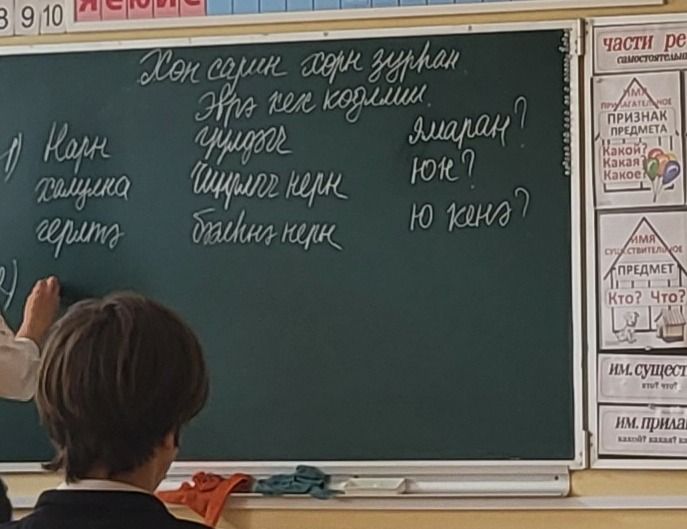 8 9 10
Хөн сарин хөрн зурһан
Эврә кех көдлмш.
1) Нарн үүлдәгч ямаран?
халулна йиртмҗ нерн юн?
герлтә бәәһнә нерн ю кенә?
2)
ЧАСТИ РЕ
САМОСТОЯТЕЛЬН
ИМЯ
ПРИЛАГАТЕЛЬНОЕ
ПРИЗНАК
ПРЕДМЕТА
Какой?
Какая?
Какое?
ИМЯ
СУЩЕСТВИТЕЛЬНОЕ
ПРЕДМЕТ
Кто? Что?
ИМ. СУЩЕСТ
КТО? ЧТО?
ИМ. ПРИЛА
КАКОЙ? КАКАЯ? КА